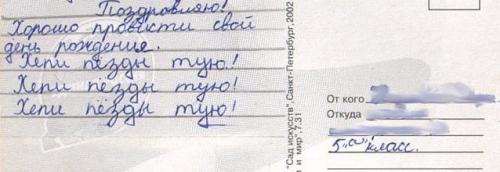 Поздравляю!
Хорошо провести свой
день рождения.
Хепи пёзды тую!
Хепи пёзды тую!
Хепи пёзды тую!
"Сад искусств", Санкт-Петербург, 2002
и мир", 7.31
От кого
Откуда
5 "а" класс.